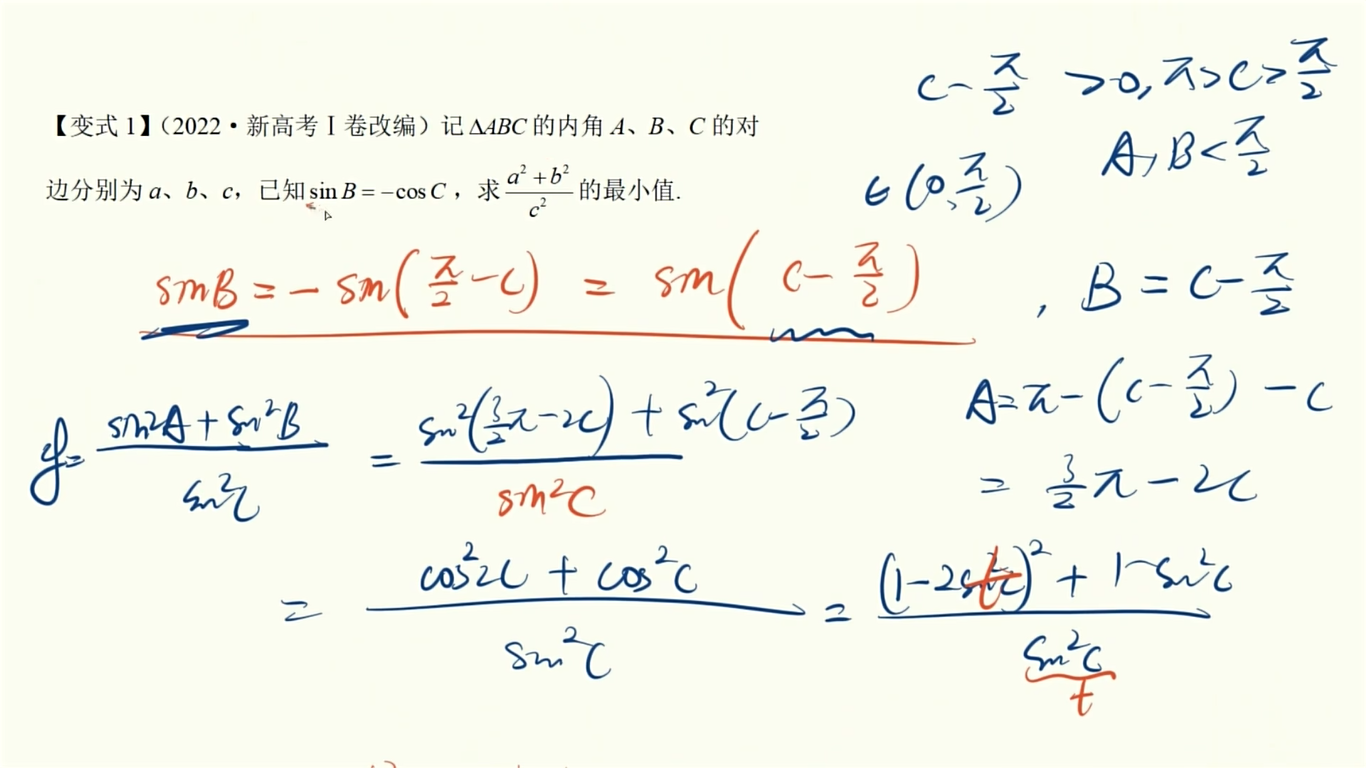 【变式 1】（2022·新高考Ⅰ卷改编）记 ΔABC 的内角 A、B、C 的对
边分别为 a、b、c，已知 sin B = −cos C，求 (a²+b²)/c² 的最小值.
C - π/2 >0, π>C>π/2
∈(0, π/2) A, B < π/2
sinB = - sin(π/2 - C) = sin(C - π/2) , B = C - π/2
A = π - (C - π/2) - C
= 3/2 π - 2C
y = (sin²A + sin²B)/sin²C = (sin²(3/2 π - 2C) + sin²(C - π/2))/sin²C
= (cos²2C + cos²C)/sin²C = ((1-2sin²C)² + 1-sin²C)/sin²C
t
t